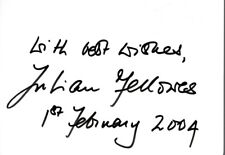 With best wishes,
Julian Fellowes
1st February 2004